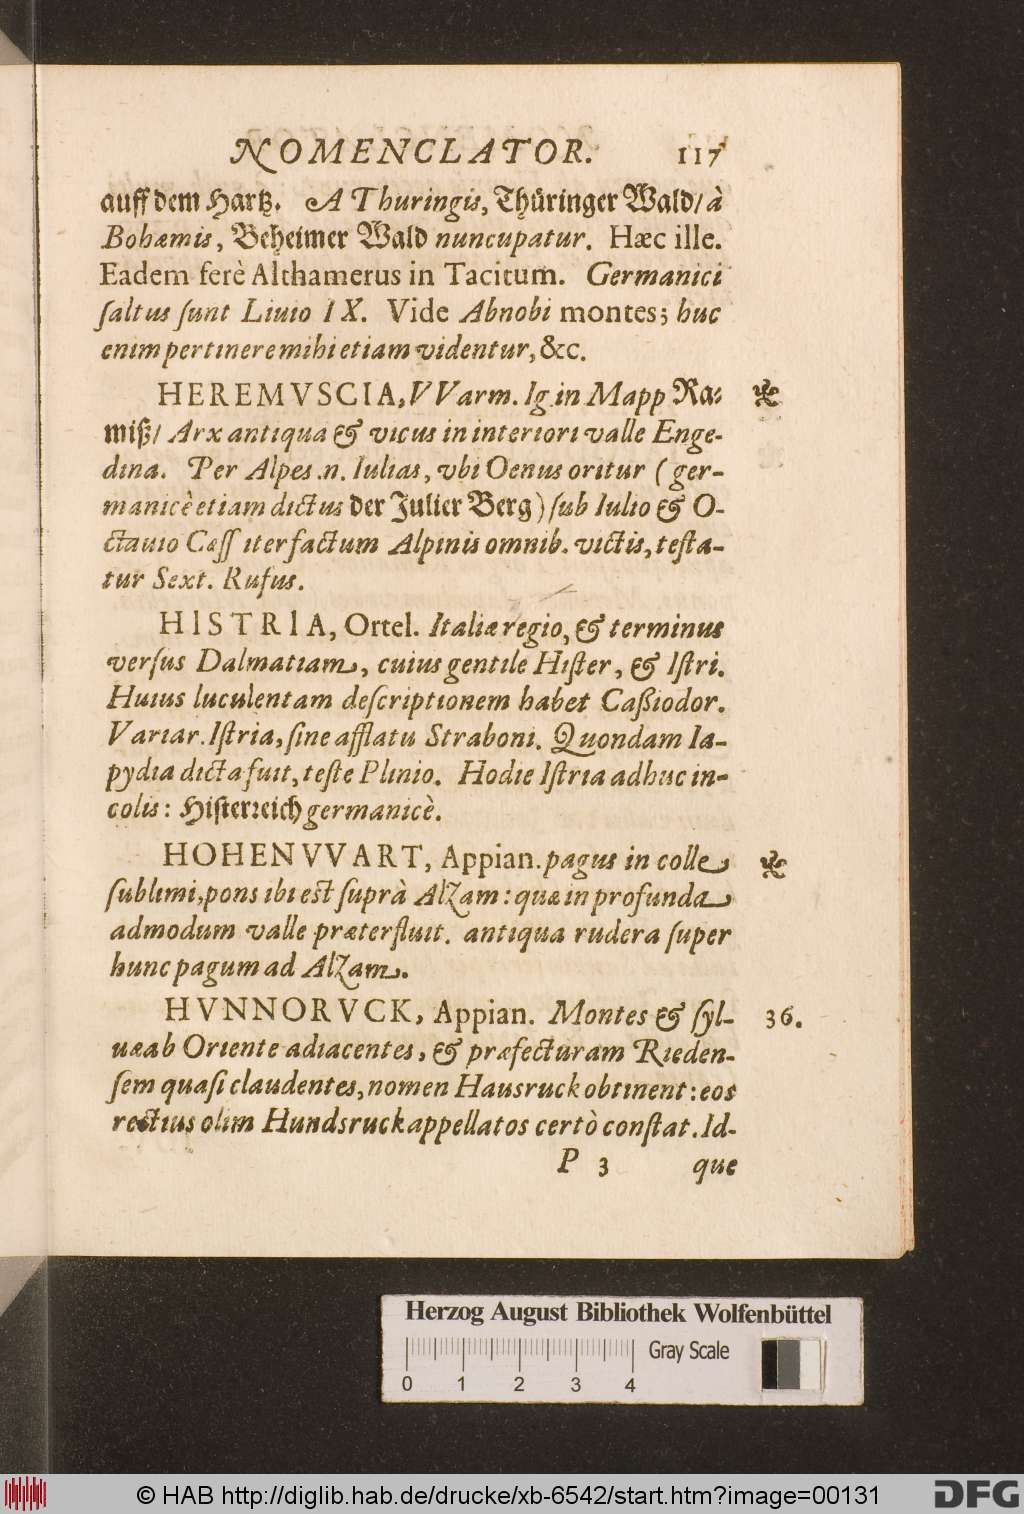 NOMENCLATOR. 117
auff dem Hartz. A Thuringis, Thüringer Wald/ à
Bohæmis, Beheimer Wald nuncupatur. Hæc ille.
Eadem ferè Althamerus in Tacitum. Germanici
ſaltus ſunt Liuio IX. Vide Abnobi montes; huc
enim pertinere mihi etiam videntur, &c.
HEREMVSCIA, VVarm. Ig. in Mapp Ra⸗
miß/ Arx antiqua & vicus in interiori valle Enge-
dina. Per Alpes .n. Iulias, vbi Oenus oritur (ger-
manicè etiam dictus der Julier Berg) ſub Iulio & O-
ctauio Cæſſ iter factum Alpinis omnib. victis, teſta-
tur Sext. Rufus.
HISTRIA, Ortel. Italiæ regio, & terminus
verſus Dalmatiam, cuius gentile Hiſter, & Iſtri.
Huius luculentam deſcriptionem habet Caßiodor.
Variar. Iſtria, ſine afflatu Straboni. Quondam Ia-
pydia dicta fuit, teſte Plinio. Hodie Iſtria adhuc in-
colis: Hiſterreich germanicè.
HOHENVVART, Appian. pagus in colle
ſublimi, pons ibi est ſuprà Alzam: quæ in profunda
admodum valle præterfluit. antiqua rudera ſuper
hunc pagum ad Alzam.
HVNNORVCK, Appian. Montes & ſyl- 36.
uæ ab Oriente adiacentes, & præfecturam Rieden-
ſem quaſi claudentes, nomen Hausruck obtinent: eos
rectius olim Hundsruck appellatos certò conſtat. Id-
P 3 que
Herzog August Bibliothek Wolfenbüttel
Gray Scale
0 1 2 3 4
© HAB http://diglib.hab.de/drucke/xb-6542/start.htm?image=00131
DFG